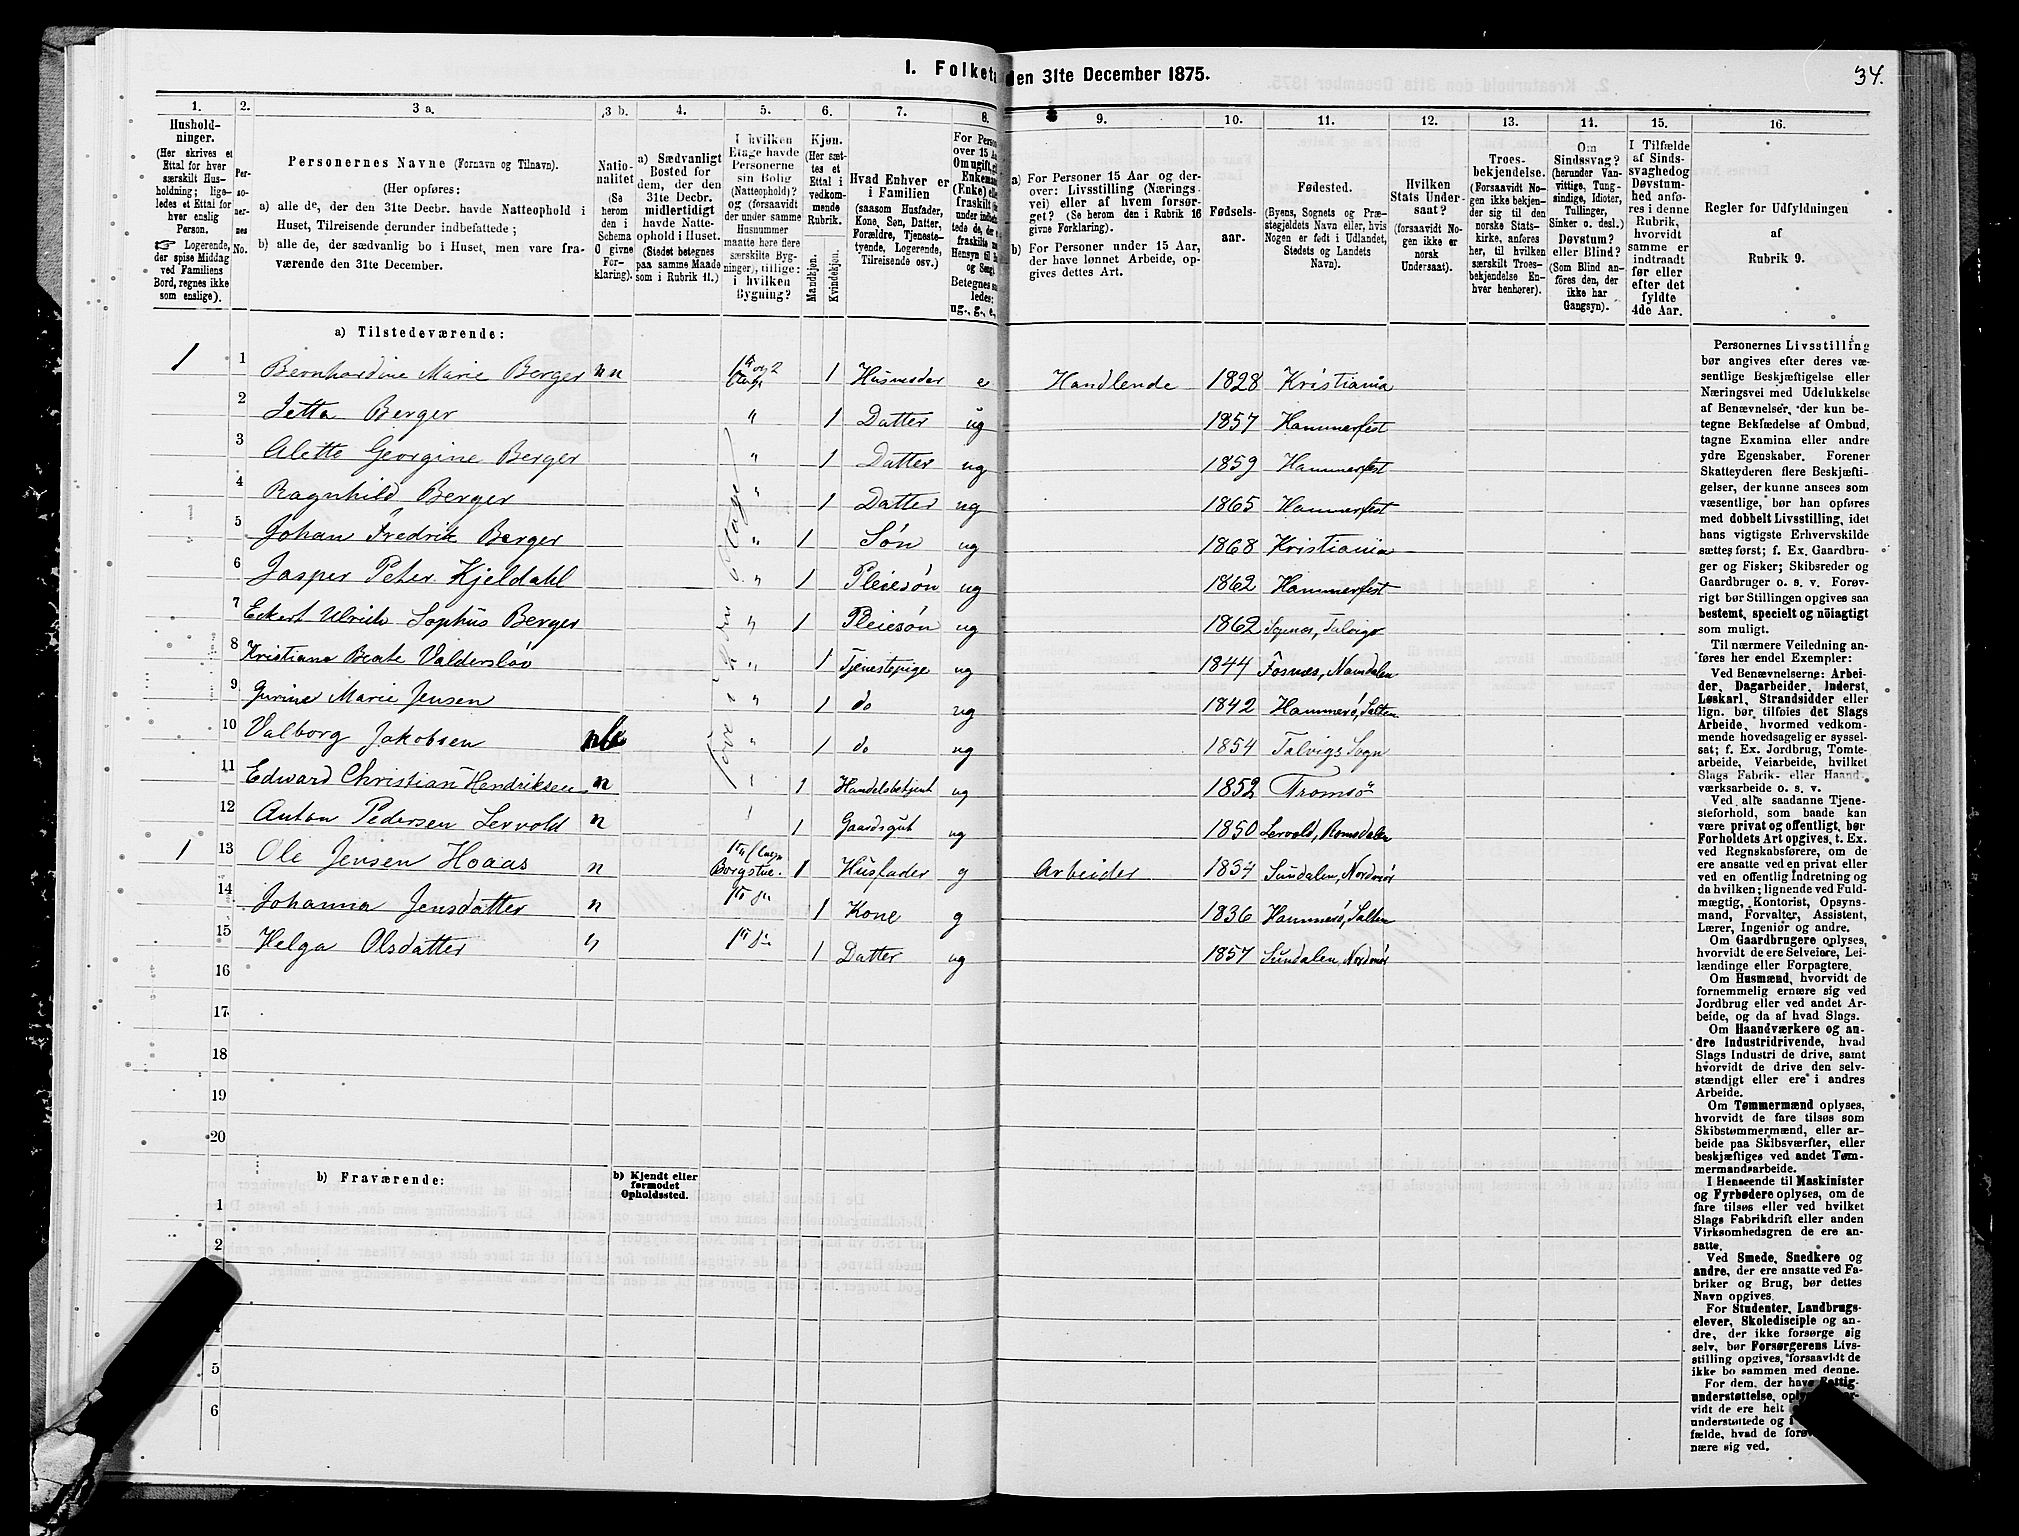 I. Folket den 31te December 1875.
34.
1. 2. 3 a. 3 b. 4. 5. 6. 7. 8. 9. 10. 11. 12. 13. 14. 15. 16.
Hushold-
ninger.
(Her skrives et
Ettal for hver
særskilt Hus-
holdning; lige-
ledes et Ettal for
hver enslig
Person.
☞ Logerende,
der spise Middag
ved Familiens
Bord, regnes ikke
som enslige).
Per-
so-
ner-
nes
No.
Personernes Navne (Fornavn og Tilnavn).
(Her opføres:
a) alle de, der den 31te Decbr. havde Natteophold i
Huset, Tilreisende derunder indbefattede;
b) alle de, der sædvanlig bo i Huset, men vare fra-
værende den 31te December.
Natio-
nalitet
(Se
herom
den i
Schema
0 givne
For-
klaring).
a) Sædvanligt
Bosted for
dem, der den
31te Decbr.
midlertidigt
havde Natte-
ophold i Huset.
(Stedet betegnes
paa samme Maade
som i Rubrik 11.)
I hvilken
Etage havde
Personerne
sin Bolig
(Natteophold)?
og (forsaavidt
der under samme
Husnummer
maatte høre flere
særskilte Byg-
ninger), tillige:
i hvilken
Bygning?
Kjøn.
(Her sæt-
tes et
Ettal i
vedkom-
mende
Rubrik.
Mandkjøn.
Kvindekjøn.
Hvad Enhver er
i Familien
(saasom Husfader,
Kone, Søn, Datter,
Forældre, Tjeneste-
tyende, Logerende,
Tilreisende osv.)
For Person
over 15 Aa
Om ugift, g
Enkeman
(Enke) elle
fraskilt
ug., g., e.,
a) For Personer 15 Aar og der-
over: Livsstilling (Nærings-
vei) eller af hvem forsør-
get? (Se herom den i Rubrik 16
givne Forklaring).
b) For Personer under 15 Aar,
der have lønnet Arbeide, op-
gives dettes Art.
Fødsels-
aar.
Fødested.
(Byens, Sognets og Præ-
stegjeldets Navn eller, hvis
Nogen er født i Udlandet,
Stedets og Landets
Navn).
Hvilken
Stats Under-
saat?
(forsaavidt No-
gen ikke er
norsk
Undersaat).
Troes-
bekjendelse.
(Forsaavidt No-
gen ikke bekjen-
der sig til den
norske Stats-
kirke, anføres
her, til hvilken
særskilt Troes-
bekjendelse En-
hver henhører).
Om
Sindssvag?
(herunder Van-
vittige, Tung-
sindige, Idioter,
Tullinger,
Sinker o. desl.)
Døvstum?
eller Blind?
(Som Blind an-
føres den, der
ikke har
Gangsyn).
I Tilfælde
af Sinds-
svaghed og
Døvstum-
hed anfø-
res i denne
Rubrik,
hvorvidt
samme er
indtraadt
før eller
efter det
fyldte
4de Aar.
Regler for Udfyldningen
af
Rubrik 9.
a) Tilstedeværende:
1 1 Bernhardine Marie Berger n 1ste og 2 Etage 1 Husmoder e Handlende 1828 Kristiania
2 Jetta Berger " 1 Datter ug 1857 Hammerfest
3 Alette Georgine Berger " 1 Datter ug 1859 Hammerfest
4 Ragnhild Berger " 1 Datter ug 1865 Hammerfest
5 Johan Fredrik Berger " 1 Søn ug 1868 Kristiania
6 Jasper Peter Kjeldahl " 1 Pleiesøn ug 1862 Hammerfest
7 Eckert Ulrich Sophus Berger " 1 Pleiesøn ug 1862 Talvig
8 Kristiana Beate Valdersløv " 1 Tjenestepige ug 1844 Fosnæs, Namdalen
9 Gurine Marie Jensen " 1 do ug 1842 Hammerø, Salten
10 Valborg Jakobsen " 1 do ug 1854 Talvigs Sogn
11 Edward Christian Hendriksen n " 1 Handelsbetjent ug 1852 Tromsö
12 Anton Pedersen Lervold n " 1 Gaardsgut ug 1850 Lervold, Romsdalen
1 13 Ole Jensen Hoaas n Borgstue. 1 Husfader g Arbeider 1834 Sundalen, Nordmør
14 Johanna Jensdatter n 1 Kone g 1836 Hammerø, Salten
15 Helga Olsdatter " 1 Datter ug 1857 Sundalen, Nordmør
16
17
18
19
20
b) Fraværende:
b) Kjendt eller
formodet
Opholdssted.
1
2
4
5
6
Personernes Livsstilling
bør angives efter deres væ-
sentlige Beskjæftigelse eller
Næringsvei med Udelukkelse
af Benævnelser, der kun be-
tegne Beklædelse af Ombud,
tagne Examina eller andre
ydre Egenskaber. Forener
Skatteyderen flere Beskjæfti-
gelser, der kunne ansees som
væsentlige, bør han opføres
med dobbelt Livsstilling, idet
hans vigtigste Erhvervskilde
sættes først; f. Ex. Gaardbru-
ger og Fisker; Skibsreder og
Gaardbruger o. s. v. Forøv-
rigt bør Stillingen opgives saa
bestemt, specielt og nöiagtigt
som muligt.
Til nærmere Veiledning an-
føres her endel Exempler:
Ved Benævnelserne: Arbei-
der, Dagarbeider, Inderst,
Løskarl, Strandsidder eller
lign. bør tilføies det Slags
Arbeide, hvormed vedkom-
mende hovedsagelig er syssel-
sat; f. Ex. Jordbrug, Tomte-
arbeide, Veiarbeide, hvilket
Slags Fabrik- eller Haand-
værksarbeide o. s. v.
Ved alle saadanne Tjene-
steforhold, som baade kan
være privat og offentligt, bør
Forholdets Art opgives, t. Ex.
ved Regnskabsførere, om de
ere ansatte ved en privat eller
ved en offentlig Indretning og
da hvilken; lignende ved Fuld-
mægtig, Kontorist, Opsyns-
mand, Forvalter, Assistent,
Lærer, Ingeniør og andre.
Om Gaardbrugere oplyses,
hvorvidt de ere Selveiere, Lei-
lændinge eller Forpagtere.
Om Husmænd, hvorvidt de
fornemmelig ernære sig ved
Jordbrug eller ved andet Ar-
beide, og da af hvad Slags.
Om Haandværkere og an-
dre Industridrivende, hvad
Slags Industri de drive, samt
hvorvidt de drive den selv-
stændigt eller ere i andres
Arbeide.
Om Tømmermænd oplyses,
hvorvidt de fare tilsøs som
Skibstømmermænd, eller ar-
beide paa Skibsværfter, eller
beskjæftiges ved andet Tøm-
mermandsarbeide.
I Henseende til Maskinister
og Fyrbødere oplyses, om de
fare tilsøs eller ved hvilket
Slags Fabrikdrift eller anden
Virksomhedsgren de ere an-
satte.
Ved Smede, Snedkere og
andre, der ere ansatte ved Fa-
briker og Brug, bør dettes
Navn opgives.
For Studenter, Landbrugs-
elever, Skoledisciple og an-
dre, der ikke forsørge sig
selv, bør Forsørgerens Livs-
stilling opgives, forsaavidt de
ikke bo sammen med denne.
For dem, der have Fattig-
understøttelse,
vidt de ere helt
understøttede og
fælde, hvad de
nære sig ved.